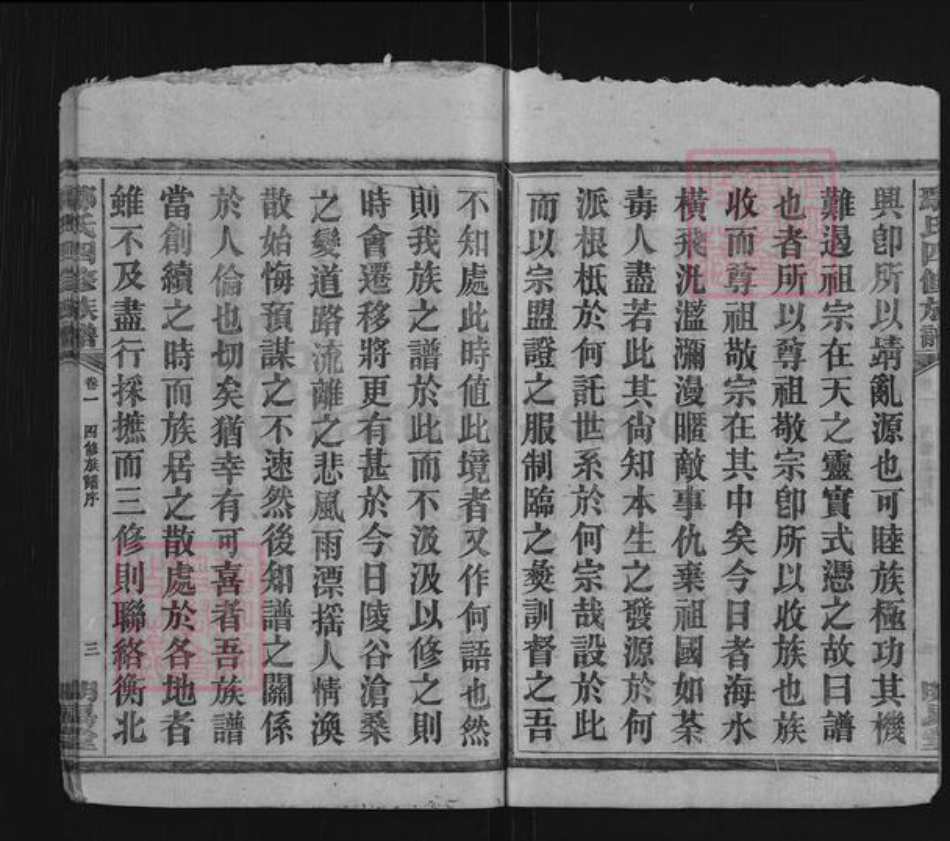 興卽所以靖亂源也可睦族極功其機
難遏祖宗在天之靈實式憑之故曰譜
也者所以尊祖敬宗卽所以收族也族
收而尊祖敬宗在其中矣今日者海水
橫飛汎濫瀰漫暱敵事仇棄祖國如荼
毒人盡若此其尙知本生之發源於何
派根柢於何託世系於何宗哉設於此
而以宗盟證之服制臨之彝訓督之吾
不知處此時値此境者又作何語也然
則我族之譜於此而不汲汲以修之則
時會遷移將更有甚於今日陵谷滄桑
之變道路流離之悲風雨漂搖人情渙
散始悔預謀之不速然後知譜之關係
於人倫也切矣猶幸有可喜者吾族譜
當創續之時而族居之散處於各地者
雖不及盡行採摭而三修則聯絡衡北
氏四修族譜
卷一
四修族譜序
三